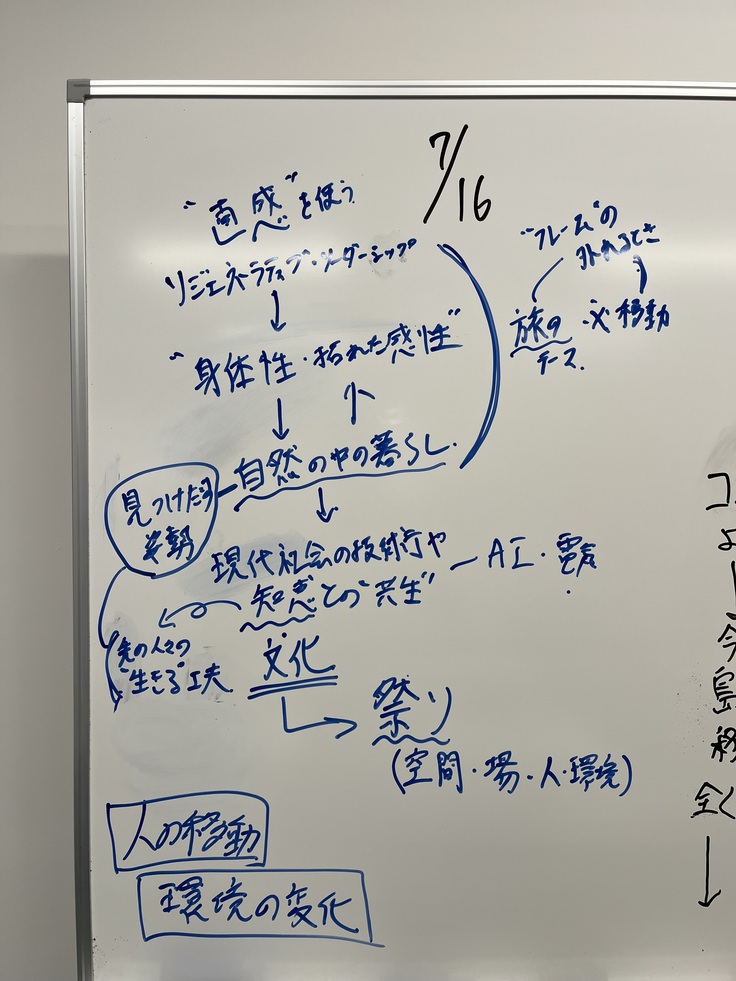 7/16
"直感"を使う
リジェネラティブ・リーダーシップ
↓
"身体性・拓れた感性"
↓ ↑
自然の中の暮らし.
↓
見つけたい
姿勢
現代社会の技術や
知恵との"共生"
AI・電気
先の人々の
"生きる"工夫
文化
祭り
(空間・場・人・環境)
人の移動
環境の変化
"フレーム"の
外れるとき
旅の
テーマ.
移動
コ
よ
今
島
移
全く
↓